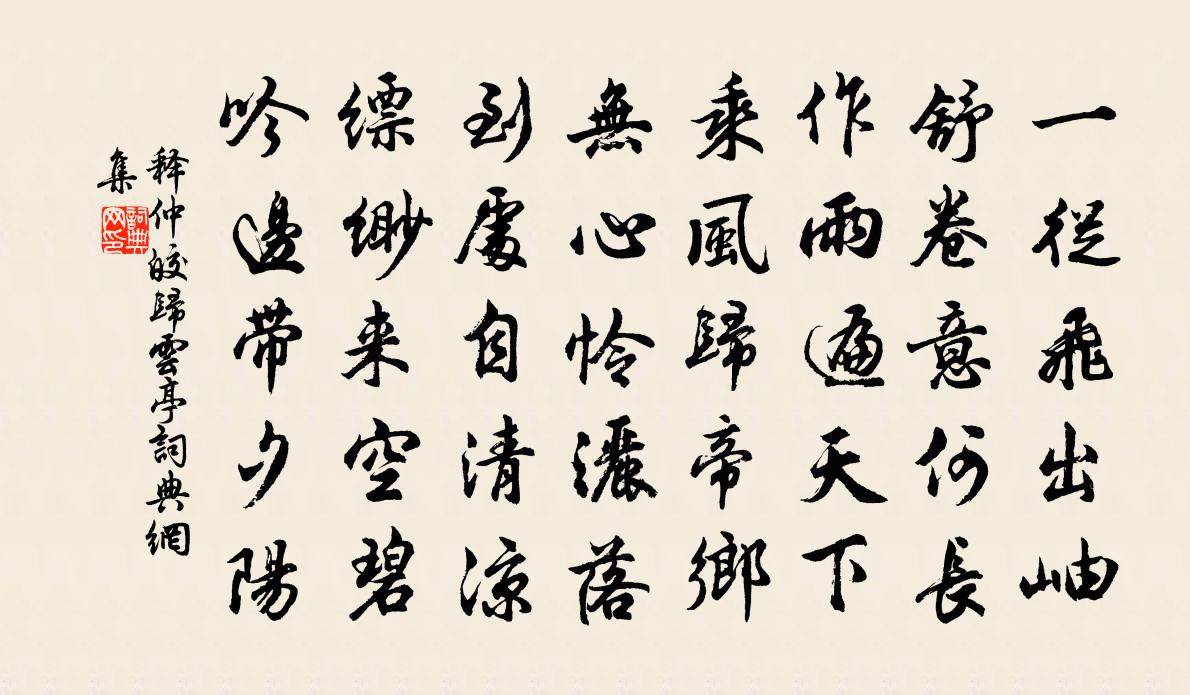 一從飛出岫
舒卷意何長
作雨遍天下
乘風歸帝鄉
無心怜灑落
到處自清涼
縹緲来空碧
吟邊帶夕陽
释仲皎歸雲亭詞典網
集
詞典
网印